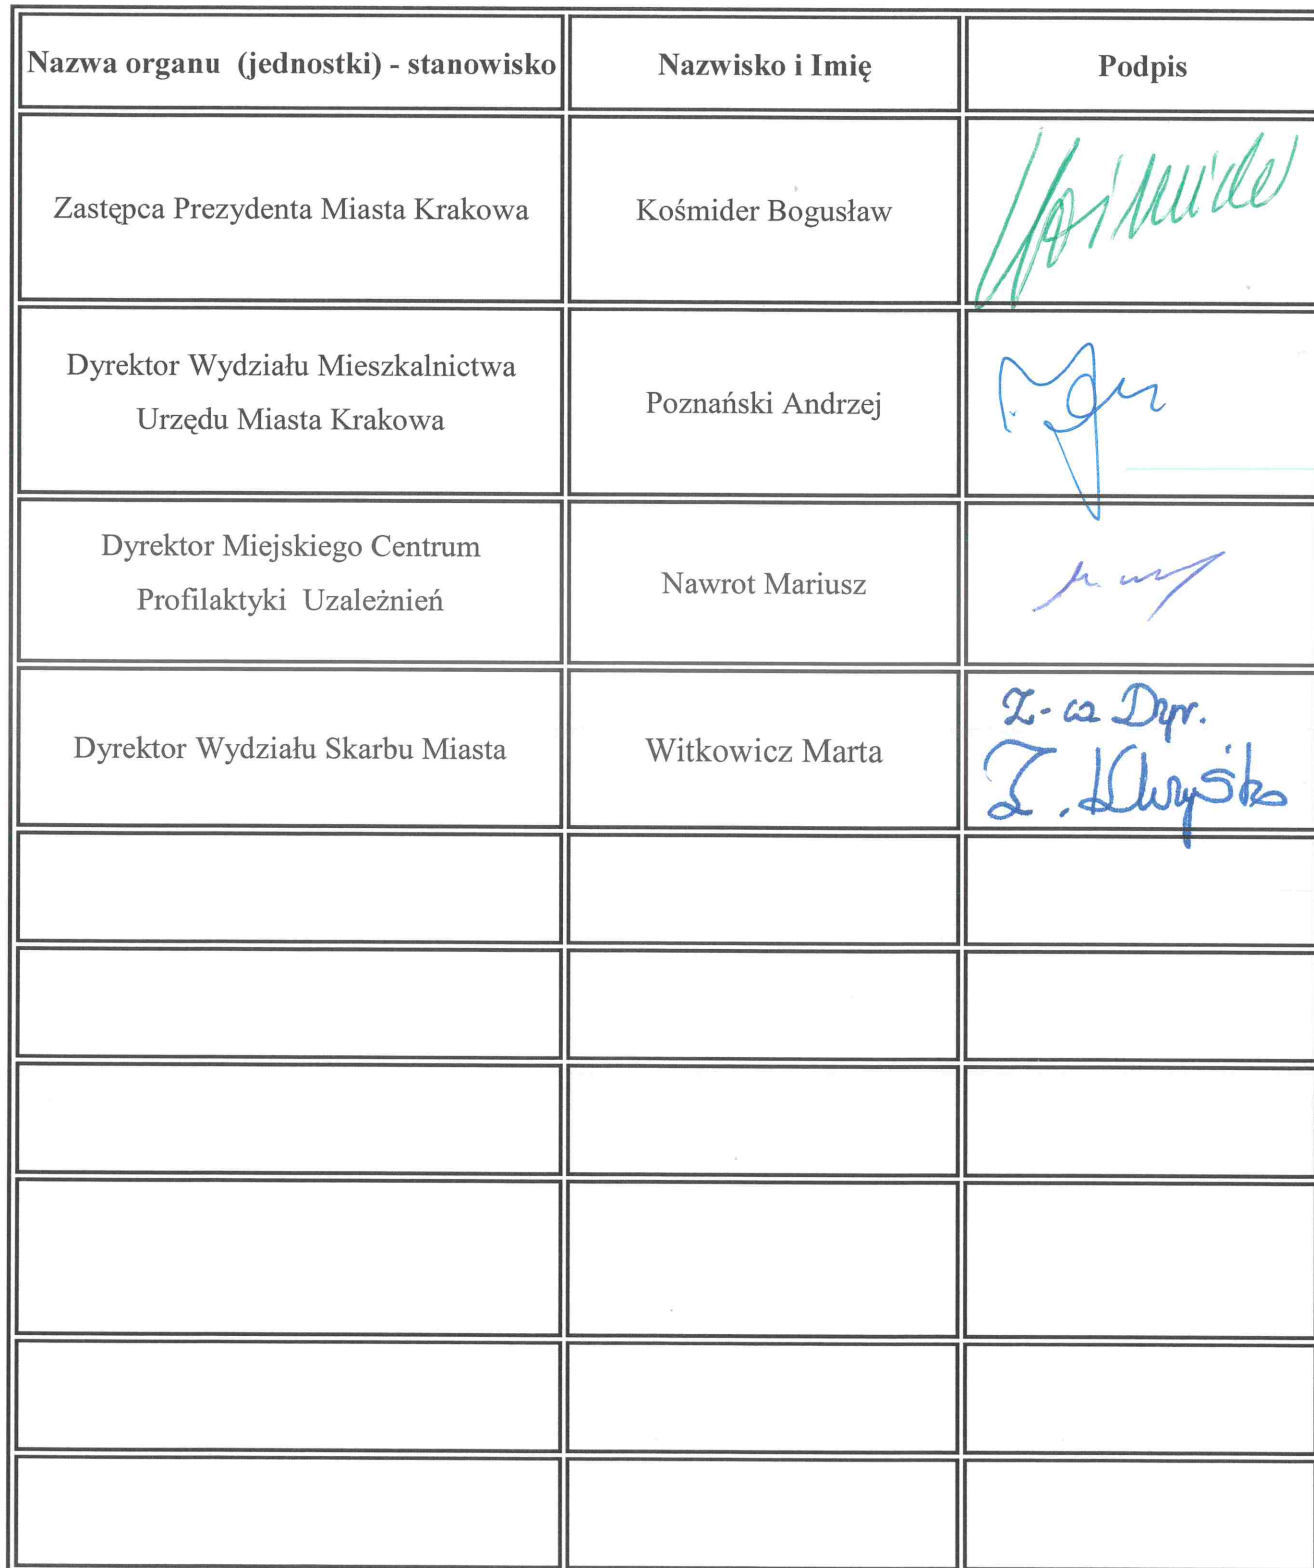 Nazwa organu (jednostki) - stanowisko Nazwisko i Imię Podpis
Zastępca Prezydenta Miasta Krakowa Kośmider Bogusław
Dyrektor Wydziału Mieszkalnictwa
Urzędu Miasta Krakowa
Poznański Andrzej
Dyrektor Miejskiego Centrum
Profilaktyki Uzależnień
Nawrot Mariusz
Dyrektor Wydziału Skarbu Miasta Witkowicz Marta
Z-ca Dyr.